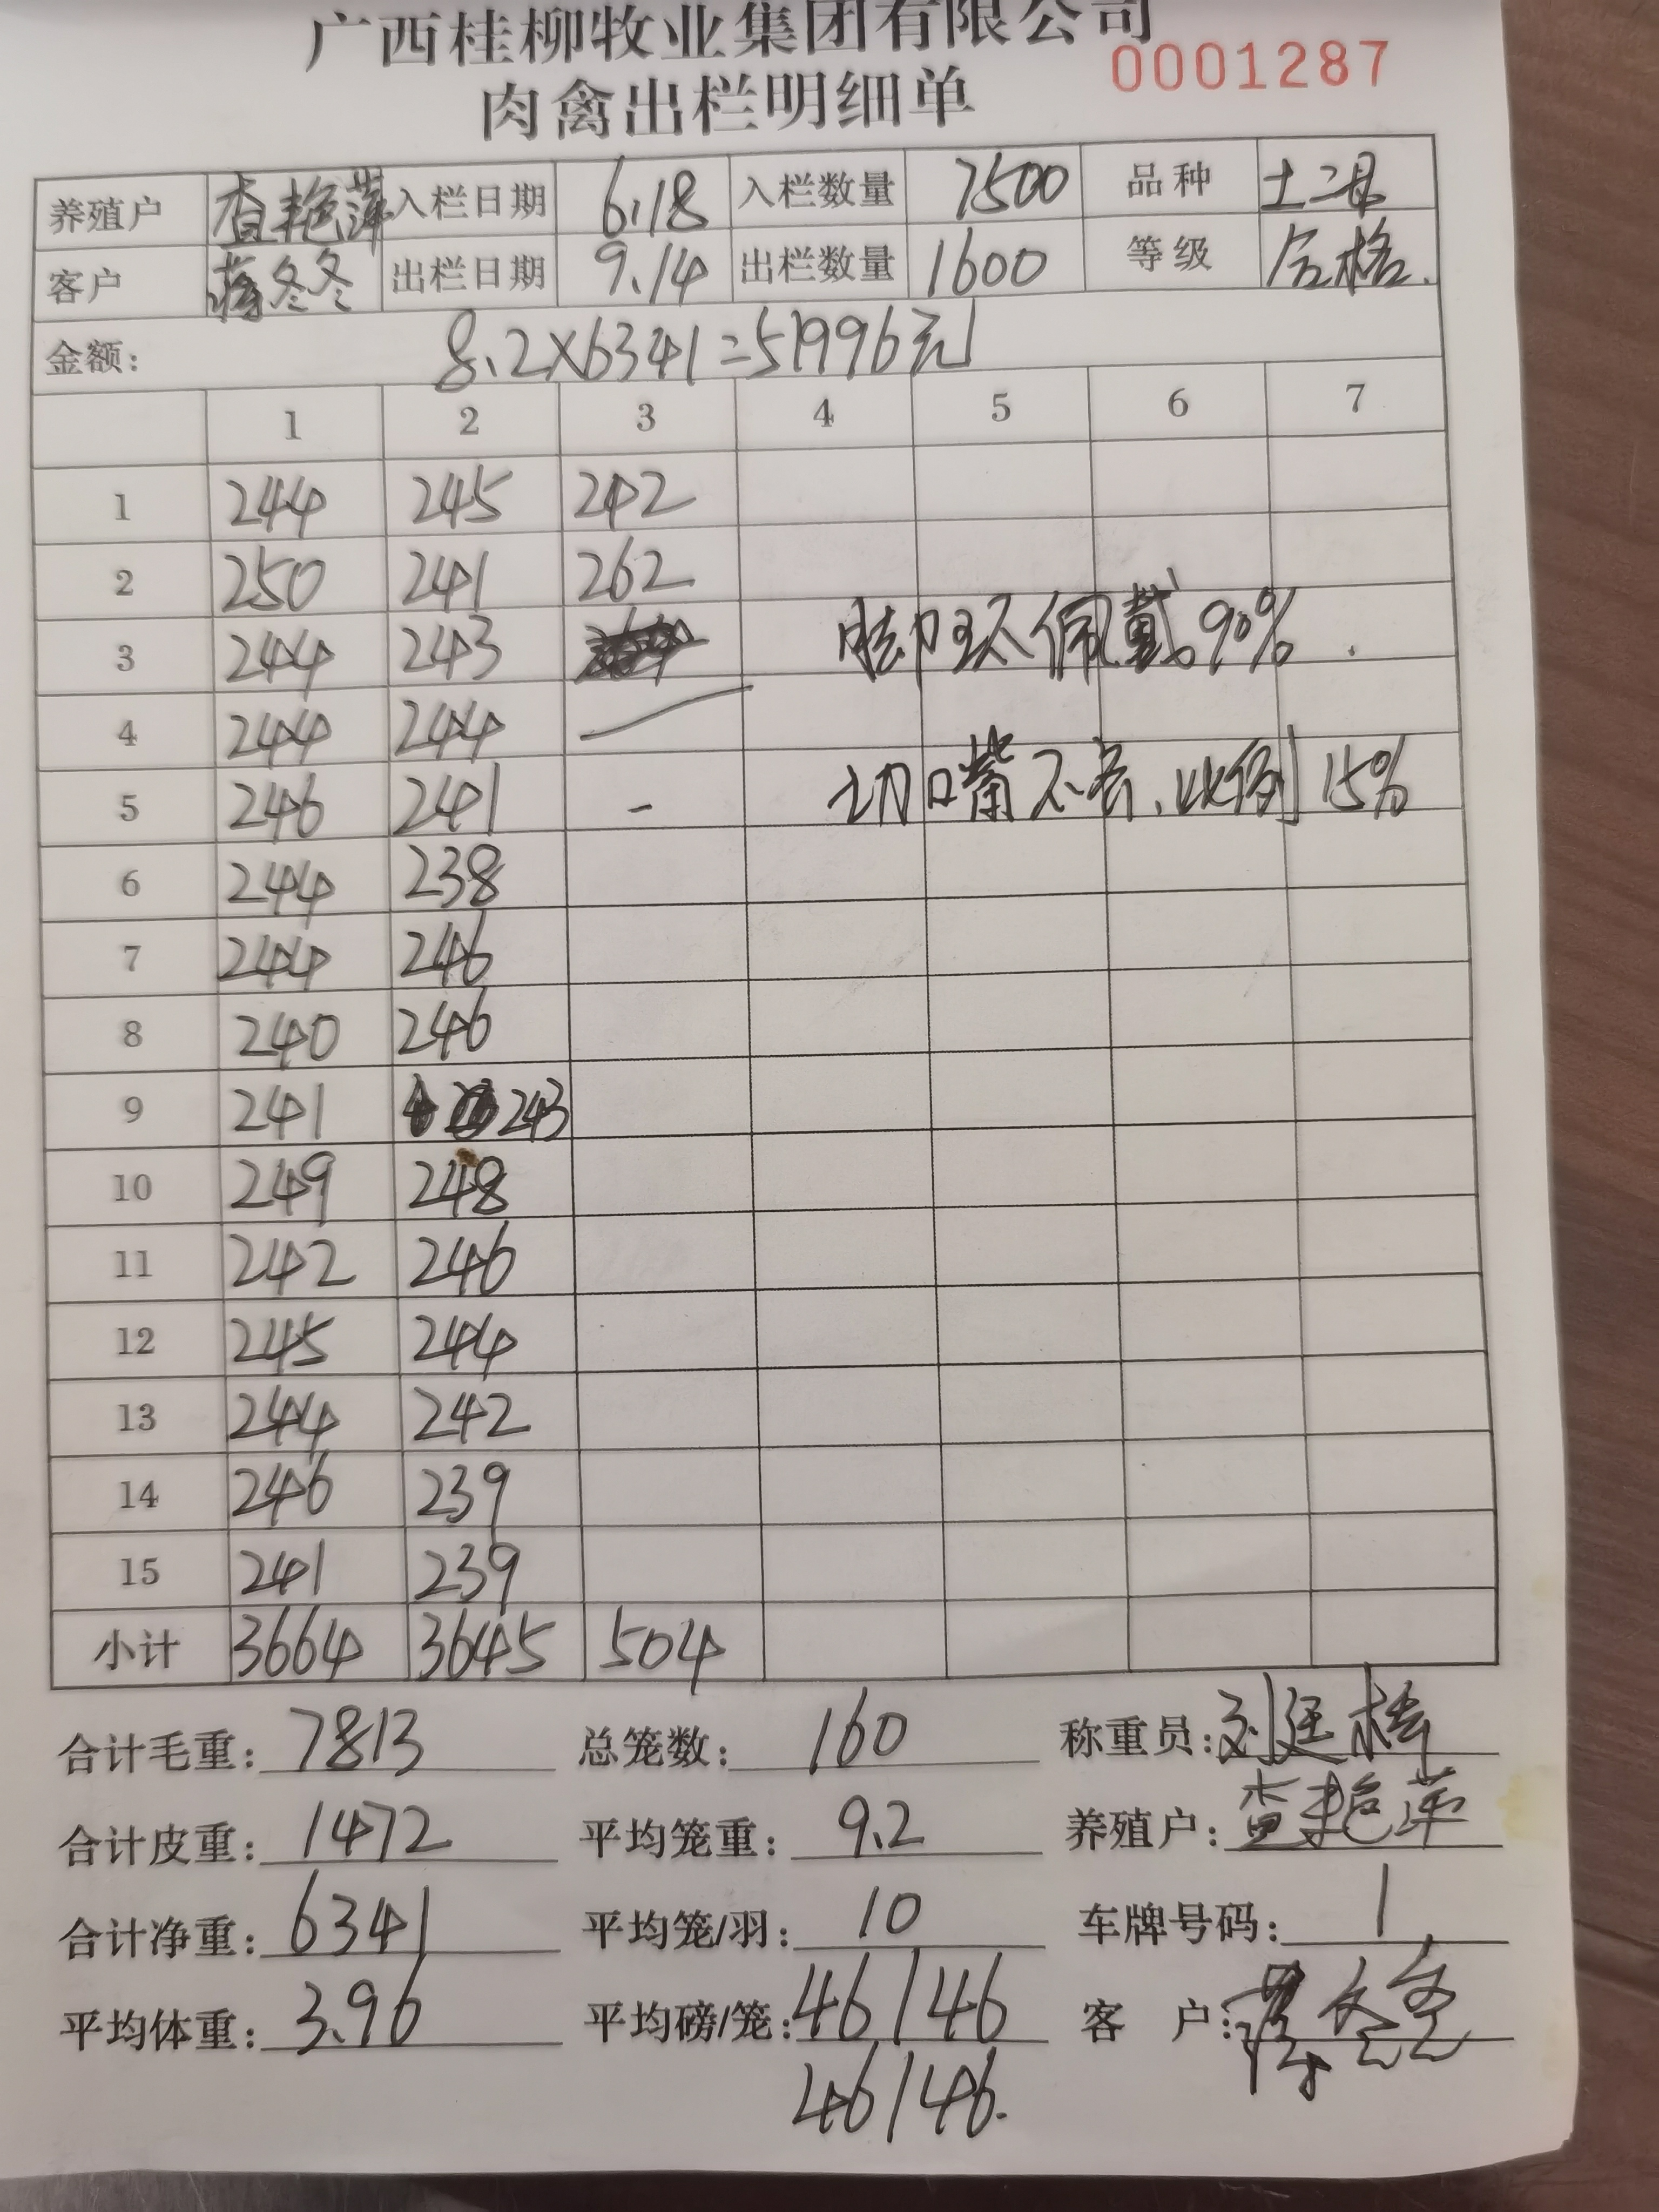 广西桂柳牧业集团有限公司
肉禽出栏明细单 0001287
养殖户 查艳萍 入栏日期 6.18 入栏数量 7500 品种 土二
客户 蒋冬冬 出栏日期 9.14 出栏数量 1600 等级 合格.
金额: 8.2×6341=51996元
1 2 3 4 5 6 7
1 244 245 242
2 250 241 262
3 244 243 脚环佩戴90%.
4 244 244
5 246 241 - 切嘴不良、比例15%
6 244 238
7 244 246
8 240 246
9 241 243
10 249 248
11 242 246
12 245 244
13 244 242
14 246 239
15 241 239
小计 3664 3645 504
合计毛重: 7813 总笼数: 160 称重员: 刘廷
合计皮重: 1472 平均笼重: 9.2 养殖户: 查艳萍
合计净重: 6341 平均笼/羽: 10 车牌号码: 1
平均体重: 3.96 平均磅/笼: 46/46 客 户: 蒋冬冬
46/46.